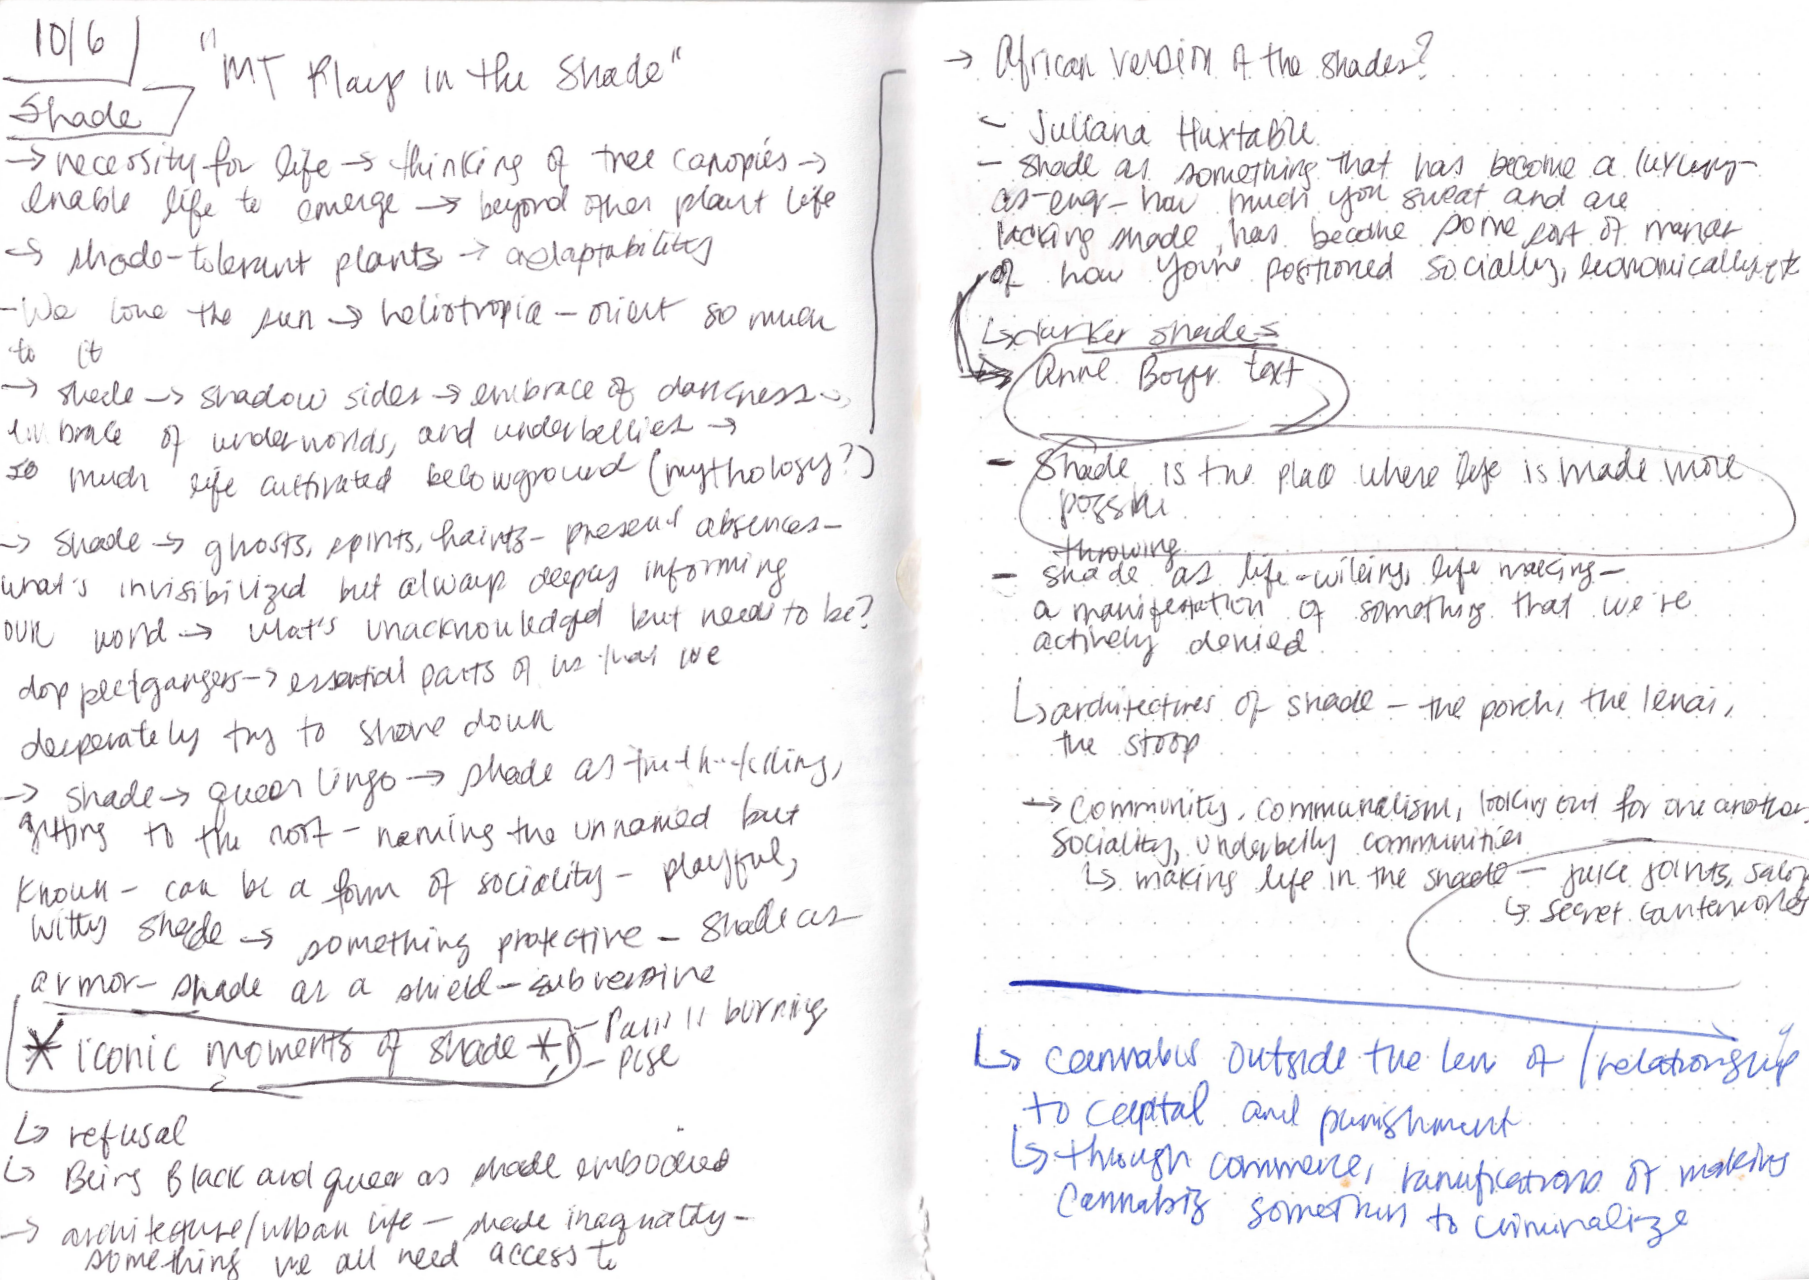 10/6
"MT Plays in the Shade"
Shade
→ necessity for life → thinking of tree canopies →
enable life to emerge → beyond other plant life
→ shade-tolerant plants → adaptability
- We love the sun → heliotropia - orient so much
to it
→ shade → shadow sides → embrace of darkness →
embrace of underworlds, and underbellies →
so much life cultivated belowground (mythology?)
→ shade → ghosts, spirits, haints - present absences -
what's invisibilized but always deeply informing
our world → what's unacknowledged but needs to be?
doppeelgangers → essential parts of us that we
desperately try to shove down
→ shade → queer lingo → shade as truth-telling,
getting to the root - naming the unnamed but
known - can be a form of sociality - playful,
witty shade → something protective - shade as
armor - shade as a shield - subversive
* iconic moments of shade *
- Paris is burning
- Pose
↳ refusal
↳ Being Black and queer as shade embodied
→ architecture/urban life - shade inequality -
something we all need access to
→ African version of the shades?
- Juliana Huxtable
- shade as something that has become a luxury -
how much you sweat and are
lacking shade, has become some sort of marker
of how you're positioned socially, economically, etc
↳ darker shades
→ Anne Boyer text
- Shade is the place where life is made more
possible
throwing
- shade as life-willing, life making -
a manifestation of something that we're
actively denied
↳ architectures of shade - the porch, the lenai,
the stoop
→ community, communalism, looking out for one another,
sociality, underbelly communities
↳ making life in the shade - juke joints, salon
↳ secret counterworlds
↳ cannabis outside the lens of / relationship
to capital and punishment
↳ through commerce, ramifications of making
cannabis something to criminalize